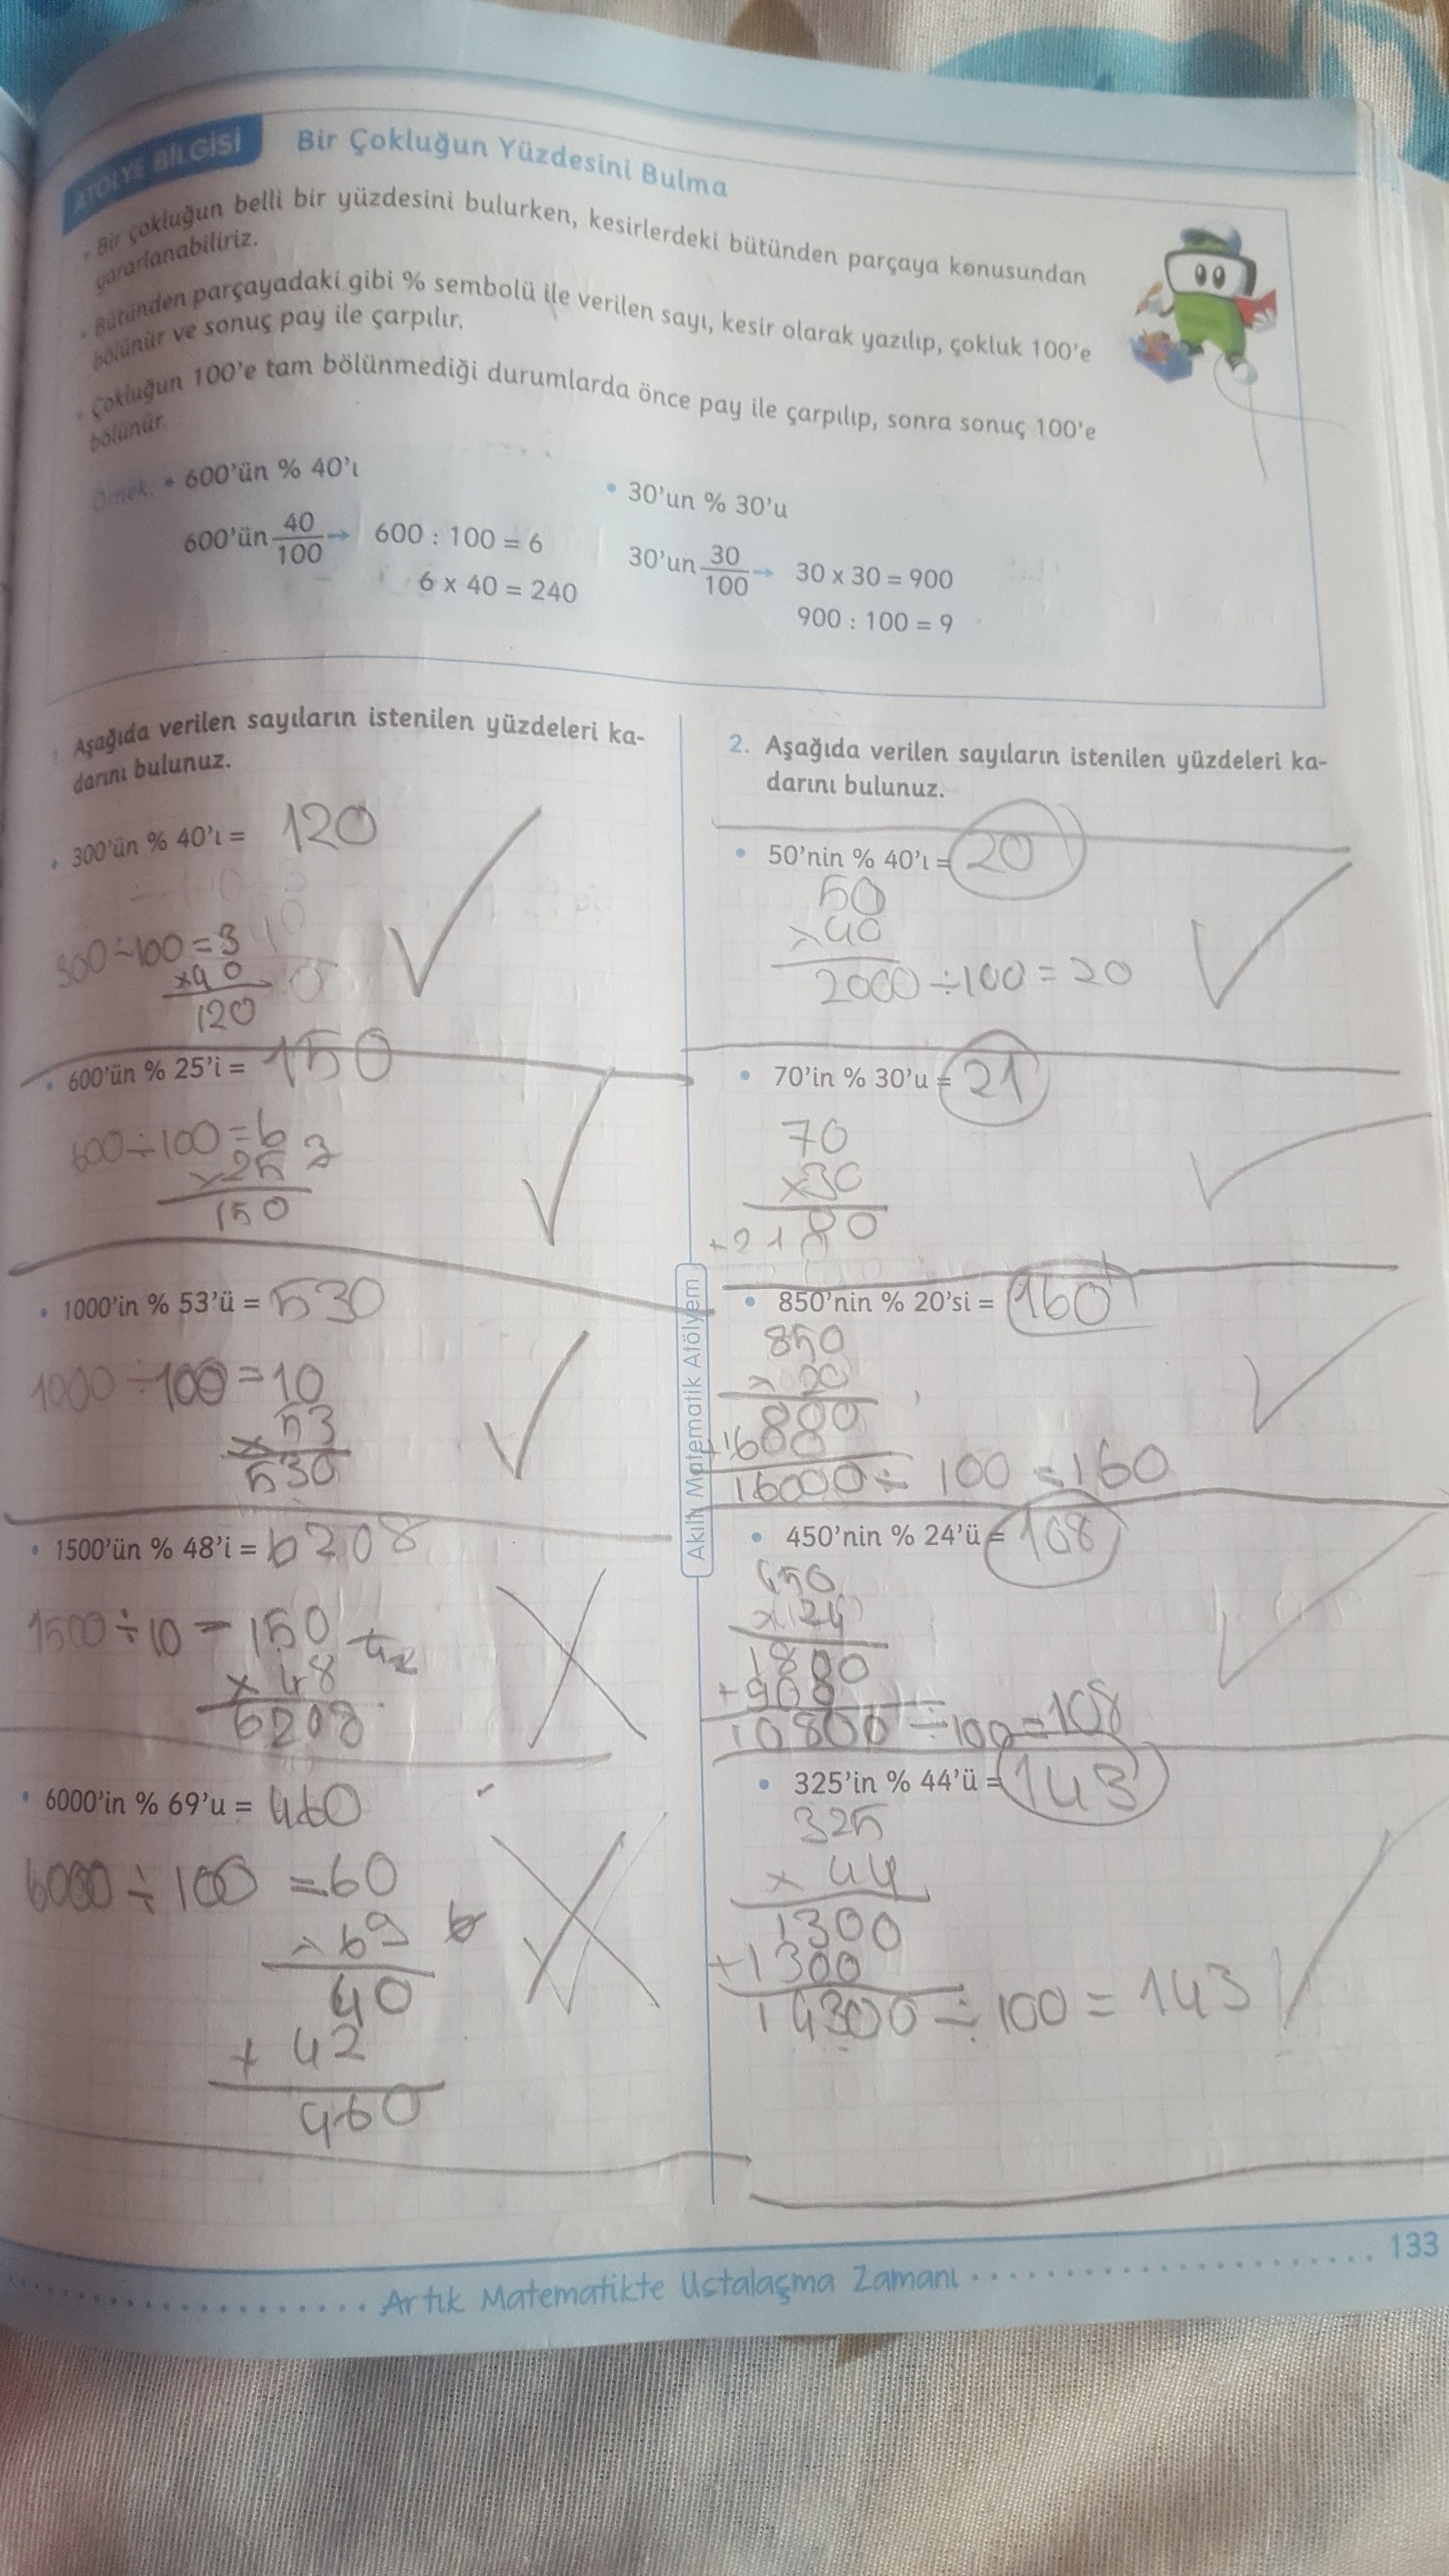 ATÖLYE BİLGİSİ
Bir Çokluğun Yüzdesini Bulma
• Bir çokluğun belli bir yüzdesini bulurken, kesirlerdeki bütünden parçaya konusundan
yararlanabiliriz.
• Bütünden parçayadaki gibi % sembolü ile verilen sayı, kesir olarak yazılıp, çokluk 100'e
bölünür ve sonuç pay ile çarpılır.
• Çokluğun 100'e tam bölünmediği durumlarda önce pay ile çarpılıp, sonra sonuç 100'e
bölünür.
Örnek: • 600'ün % 40'ı
600'ün 40/100 → 600 : 100 = 6
6 x 40 = 240
• 30'un % 30'u
30'un 30/100 → 30 x 30 = 900
900 : 100 = 9
1. Aşağıda verilen sayıların istenilen yüzdeleri ka-
darını bulunuz.
• 300'ün % 40'ı = 120
300÷100=3
x40
120
• 600'ün % 25'i = 150
600÷100=6
x25 3
150
• 1000'in % 53'ü = 530
1000÷100=10
x53
530
• 1500'ün % 48'i = 6208
1500÷10=150
x48
6208
• 6000'in % 69'u = 460
6000÷100=60
x69
40
+42
460
2. Aşağıda verilen sayıların istenilen yüzdeleri ka-
darını bulunuz.
• 50'nin % 40'ı = 20
50
x40
2000÷100=20
• 70'in % 30'u = 21
70
x30
• 850'nin % 20'si = 160
850
x20
16000÷100=160
• 450'nin % 24'ü = 108
450
x24
1800
10800÷100=108
• 325'in % 44'ü = 143
325
x44
1300
+1300
14300÷100=143
Akıllı Matematik Atölyem
133
Artık Matematikte Ustalaşma Zamanı